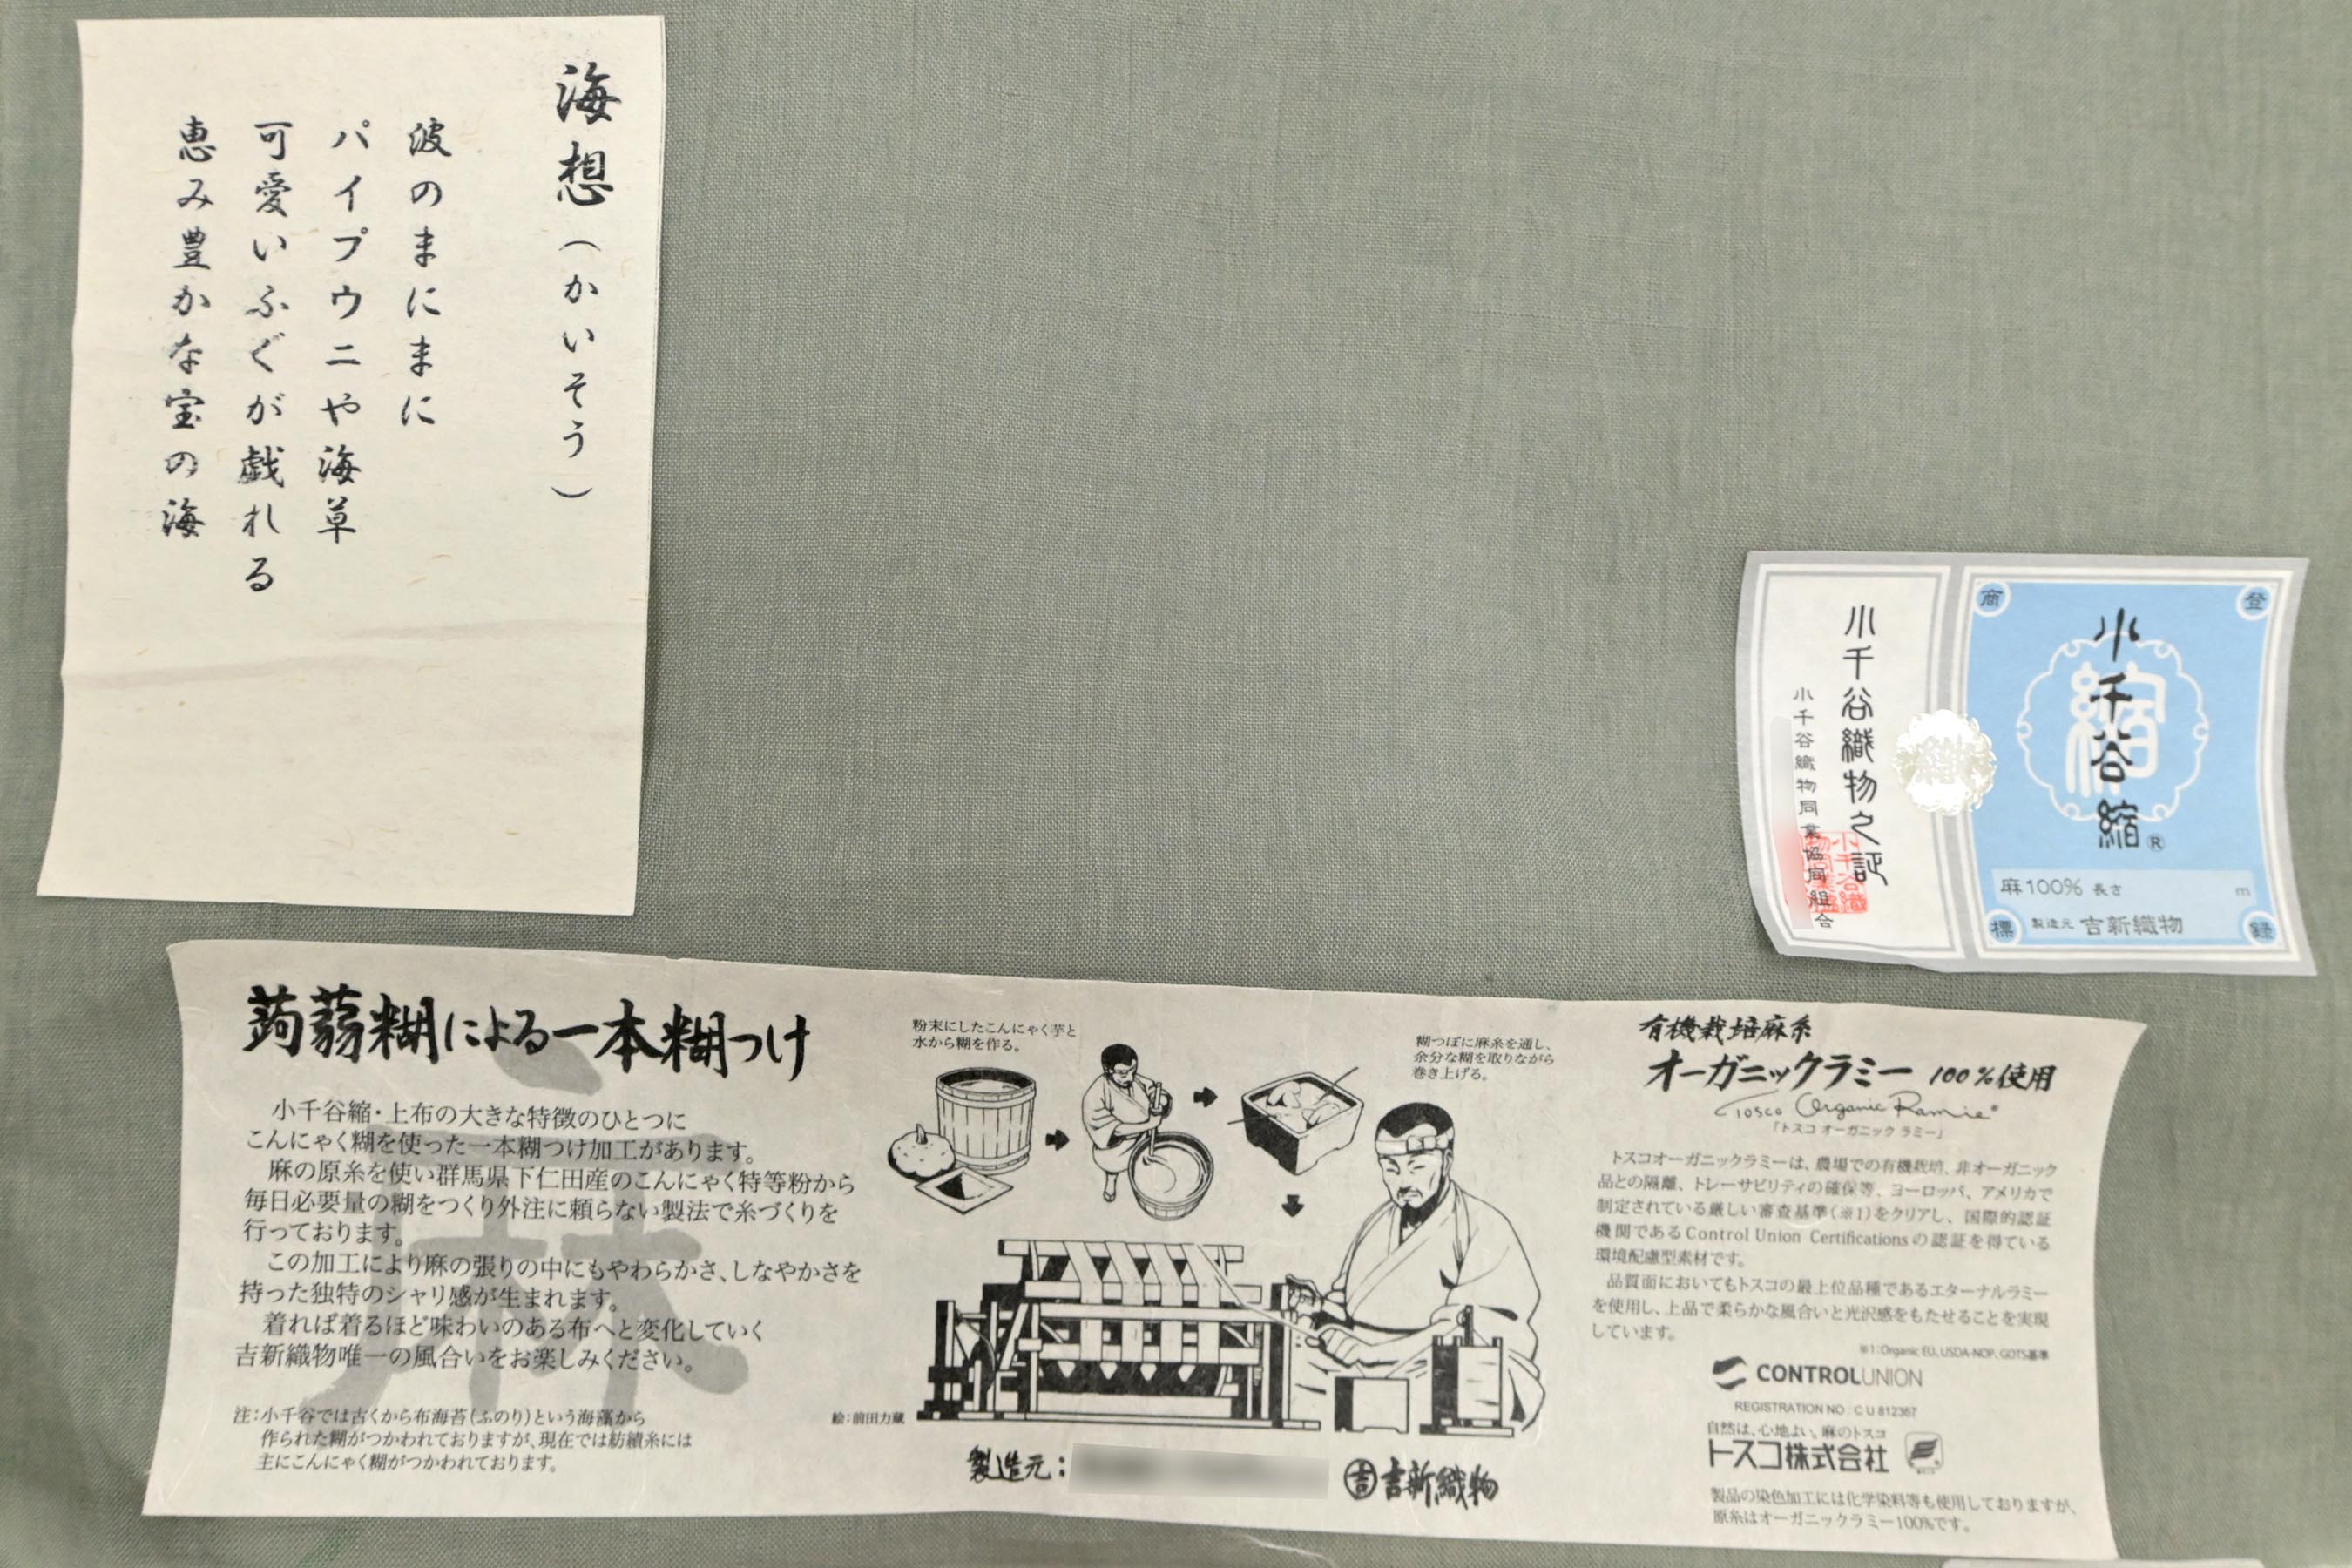 海想（かいそう）
波のまにまに
パイプウニや海草
可愛いふぐが戯れる
恵み豊かな宝の海
登
録
商
標
縮
小千谷縮®
麻100% 長さ m
製造元 吉新織物
小千谷織物之証
小千谷織物同業協同組合
蒟蒻糊による一本糊つけ
麻
小千谷縮・上布の大きな特徴のひとつに
こんにゃく糊を使った一本糊つけ加工があります。
麻の原糸を使い群馬県下仁田産のこんにゃく特等粉から
毎日必要量の糊をつくり外注に頼らない製法で糸づくりを
行っております。
この加工により麻の張りの中にもやわらかさ、しなやかさを
持った独特のシャリ感が生まれます。
着れば着るほど味わいのある布へと変化していく
吉新織物唯一の風合いをお楽しみください。
注：小千谷では古くから布海苔（ふのり）という海藻から
作られた糊がつかわれておりますが、現在では紡績糸には
主にこんにゃく糊がつかわれております。
粉末にしたこんにゃく芋と
水から糊を作る。
糊つぼに麻糸を通し、
余分な糊を取りながら
巻き上げる。
絵：前田力蔵
製造元：
吉 吉新織物
有機栽培麻糸
オーガニックラミー 100%使用
Tosco Organic Ramie®
「トスコ オーガニック ラミー」
トスコオーガニックラミーは、農場での有機栽培、非オーガニック
品との隔離、トレーサビリティの確保等、ヨーロッパ、アメリカで
制定されている厳しい審査基準(※1)をクリアし、国際的認証
機関であるControl Union Certificationsの認証を得ている
環境配慮型素材です。
品質面においてもトスコの最上位品種であるエターナルラミー
を使用し、上品で柔らかな風合いと光沢感をもたせることを実現
しています。
※1:Organic EU, USDA-NOP, GOTS基準
CONTROLUNION
REGISTRATION NO : C U 812367
自然は、心地よい。麻のトスコ
トスコ株式会社
製品の染色加工には化学染料等も使用しておりますが、
原糸はオーガニックラミー100%です。